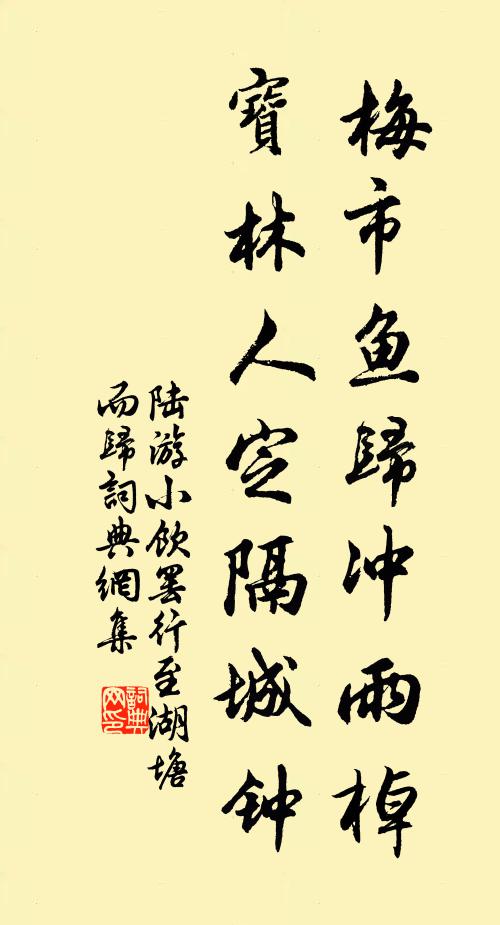 梅市鱼歸冲雨棹
寶林人定隔城钟
陆游小飲罢行至湖塘
而歸詞典網集
詞典网印